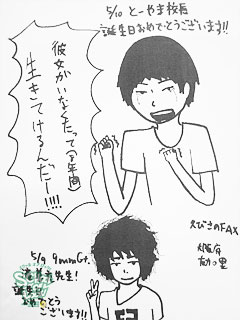 5/10 とーやま校長
誕生日おめでとうございます!!
彼女がいなくたって(9年間)
生きてけるんだー!!!!
えびすのFAX
大阪府
5/9 9mm Gt.
先生!
誕生日
おめでとう
ございます!!